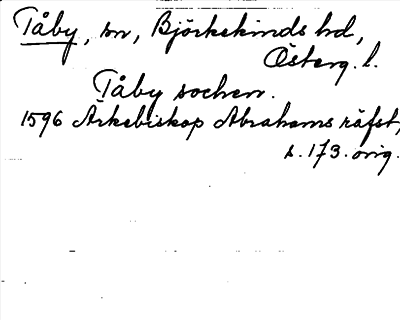 Tåby, sn, Björkekinds hd,
Österg. l.
Tåby sochen.
1596 Ärkebiskop Abrahams räfst,
s. 173. orig.